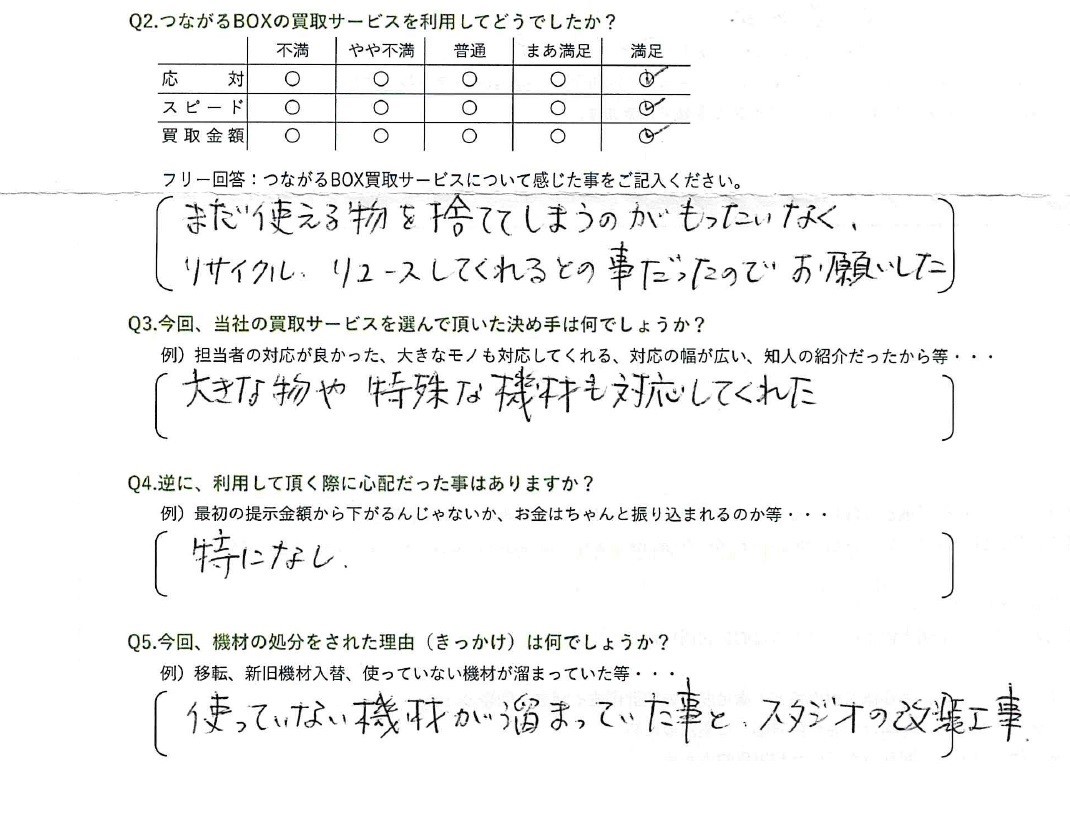 Q2.つながるBOXの買取サービスを利用してどうでしたか？
不満 やや不満 普通 まあ満足 満足
応対 ○ ○ ○ ○ ○✓
スピード ○ ○ ○ ○ ○✓
買取金額 ○ ○ ○ ○ ○✓
フリー回答：つながるBOX買取サービスについて感じた事をご記入ください。
まだ使える物を捨ててしまうのがもったいなく、
リサイクル、リユースしてくれるとの事だったのでお願いした
Q3.今回、当社の買取サービスを選んで頂いた決め手は何でしょうか？
例）担当者の対応が良かった、大きなモノも対応してくれる、対応の幅が広い、知人の紹介だったから等・・・
大きな物や特殊な機材も対応してくれた
Q4.逆に、利用して頂く際に心配だった事はありますか？
例）最初の提示金額から下がるんじゃないか、お金はちゃんと振り込まれるのか等・・・
特になし.
Q5.今回、機材の処分をされた理由（きっかけ）は何でしょうか？
例）移転、新旧機材入替、使っていない機材が溜まっていた等・・・
使っていない機材が溜まっていた事と、スタジオの改装工事.